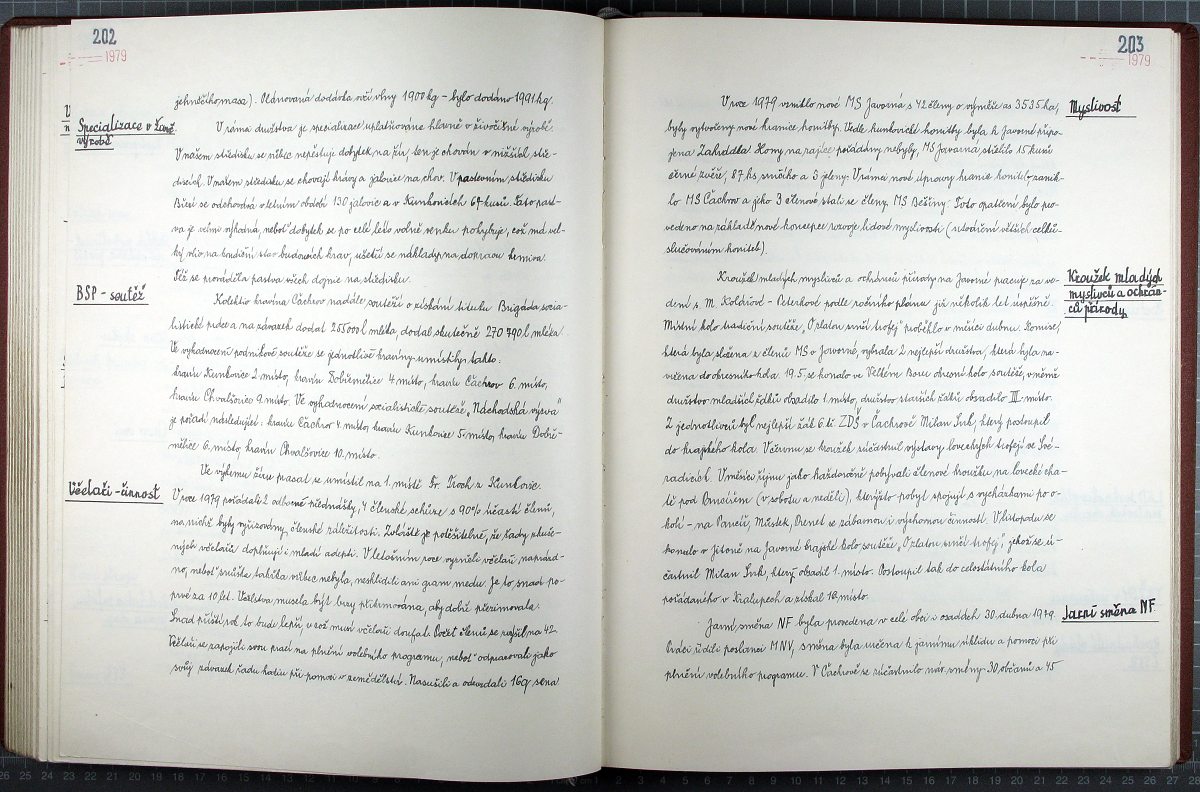 202
1979
jehněčího masa). Plánovaná dodávka ovčí vlny 1900 kg – bylo dodáno 1991 kg.
Specializace v živč. výrobě
V rámci družstva je specializace uplatňována hlavně v živočišné výrobě.
V našem středisku se vůbec nepěstuje dobytek na žír, ten je chován v nižších stře-
discích. V našem středisku se chovají krávy a jalovice na chov. V pastevním středisku
Bíří se odchovává v letním období 130 jalovic a v Kunkovicích 64 kusů. Tato past-
va je velmi výhodná, neboť dobytek se po celé léto volně venku pohybuje, což má vel-
ký vliv na budoucích krav, ušetří se náklady na dopravu krmiva.
Též se prováděla pastva všech dojnic na středisku.
BSP - soutěž
Kolektiv kravína Čachrov nadále soutěží o získání titulu Brigáda socia-
listické práce a na závazek dodat 255000 l mléka, dodal skutečně 270 790 l mléka.
Ve vyhodnocení podnikové soutěže se jednotlivé kravíny umístily takto:
kravín Kunkovice 2. místo, kravín Dobřemělice 4. místo, kravín Čachrov 6. místo,
kravín Chvalšovice 9. místo. Ve vyhodnocení socialistické soutěže „Náchodská výzva"
je pořadí následující: kravín Čachrov 4. místo, kravín Kunkovice 5. místo, kravín Dobře-
mělice 6. místo, kravín Chvalšovice 10. místo.
Ve výkrmu žíru prasat se umístil na 1. místě Fr. z Kunkovic.
Včelaři - činnost
V roce 1979 pořádali 2 odborné přednášky, 4 členské schůze s 90% účastí členů,
na nichž byly vyřizovány členské záležitosti. Zvláště je potěšitelné, že řady zkuše-
ných včelařů doplňují i mladí adepti. V letošním roce vyzněli včelaři naprázd-
no, neboť snůška takřka vůbec nebyla, neshlídili ani gram medu. Je to snad po-
prvé za 10 let. Včelstva musela být brzy přikrmována, aby dobře přezimovala.
Snad příští rok to bude lepší, v což musí včelaři doufat. Počet členů se zvýšil na 42.
Včelaři se zapojili svou prací na plnění volebního programu, neboť odpracovali jako
svůj závazek řadu hodin při pomoci v zemědělství. Nasušili a odevzdali 16q sena
203
1979
Myslivost
V roce 1979 vzniklo nové MS Javorná s 42 členy o výměře as 3535 ha,
byly vytvořeny nové hranice honitby. Vedle kunkovické honitby byla k Javorné připo-
jena Zahrádka. Hony na zajíce pořádány nebyly, MS Javorná střelilo 15 kusů
černé zvěře, 87 ks srnčího a 3 jeleny. V rámci nové úpravy hranic honiteb, zanik-
lo MS Čachrov a jeho 3 členové stali se členy MS Běšiny. Toto opatření bylo pro-
vedeno na základě nové koncepce rozvoje lidové myslivosti (utváření větších celků
slučováním honiteb).
Kroužek mladých myslivců a ochrán-
ců přírody.
Kroužek mladých myslivců a ochránců přírody na Javorné pracuje za ve-
dení s. M. Kolářové - Peterkové podle ročního plánu již několik let úspěšně.
Místní kolo tradiční soutěže „O zlatou srnčí trofej" proběhlo v měsíci dubnu. Komise,
která byla složena z členů MS v Javorné, vybrala 2 nejlepší družstva, která byla na-
vržena do okresního kola. 19.5. se konalo ve Velkém Boru okresní kolo soutěže, v němž
družstvo mladších žáků obsadilo 1. místo, družstvo starších žáků obsadilo III. místo.
Z jednotlivců byl nejlepší žák 6. tř. ZDŠ v Čachrově Milan Srk, který postoupil
do krajského kola. V červnu se kroužek zúčastnil výstavy loveckých trofejí ve Své-
radicích. V měsíci říjnu jako každoročně pobývali členové kroužku na lovecké cha-
tě pod Pancířem (v sobotu a neděli), kterýžto pobyt spojují s vycházkami po o-
kolí - na Pancíř, Můstek, Prenet se zábavnou i výchovnou činností. V listopadu se
konalo v Jitoně na Javorné krajské kolo soutěže „O zlatou srnčí trofej", jehož se zú-
častnil Milan Srk, který obsadil 1. místo. Postoupil tak do celostátního kola
pořádaného v Kralupech a získal 16. místo.
Jarní směna NF
Jarní směna NF byla provedena v celé obci i osadách 30. dubna 1979.
Práci řídili poslanci MNV, směna byla určena k jarnímu úklidu a pomoci při
plnění volebního programu. V Čachrově se zúčastnilo nár. směny 30 občanů a 45